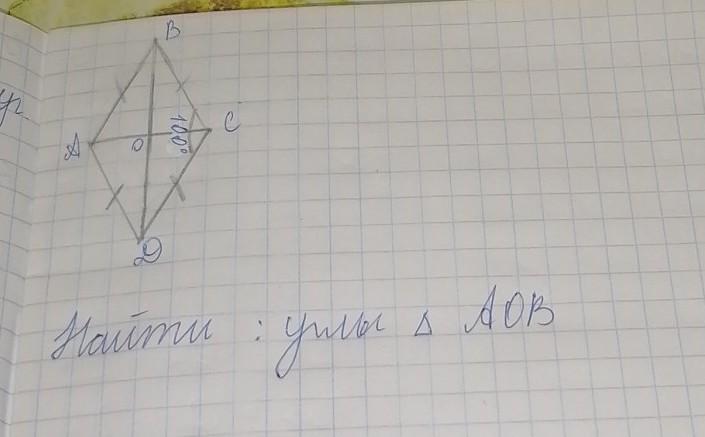 B
A
O
100°
C
D
Найти : углы Δ AOB